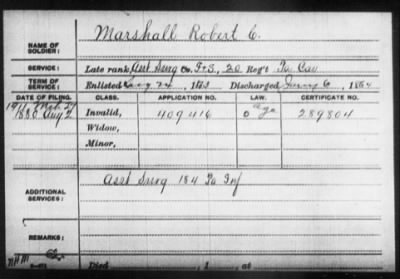 Marshall Robert C.
NAME OF SOLDIER:
SERVICE: Late rank Asst Surg Co. F+S, 20 Reg't Pa Cav
TERM OF SERVICE: Enlisted 24, 1863 Discharged 6, 1864
DATE OF FILING. CLASS. APPLICATION NO. LAW. CERTIFICATE NO.
1880 Aug 2 Invalid, 409416 289804
Age
Widow,
Minor,
ADDITIONAL SERVICES:
Asst Surg 184 Pa Inf
REMARKS:
Died , 1 at